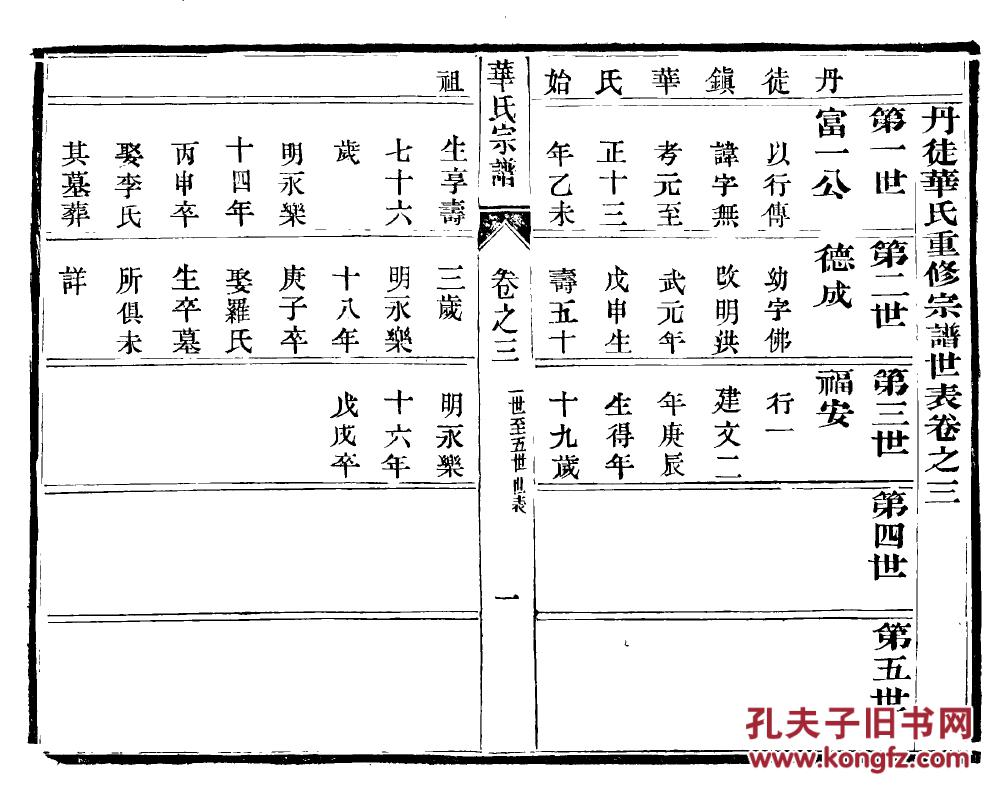 丹徒華氏重修宗譜世表卷之三
丹徒鎮華氏始祖
第一世
富一公
以行傳
諱字無
考元至
正十三
年乙未
生享壽
七十六
歲
明永樂
十四年
丙申卒
娶李氏
其墓葬
第二世
德成
幼字佛
改明洪
武元年
戊申生
壽五十
三歲
明永樂
十八年
庚子卒
娶羅氏
生卒墓
所俱未
詳
第三世
福安
行一
建文二
年庚辰
生得年
十九歲
明永樂
十六年
戊戌卒
第四世
第五世
華氏宗譜
卷之三
一世至五世世表
一
孔夫子旧书网
www.kongfz.com